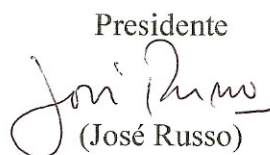 Presidente
José Russo
(José Russo)